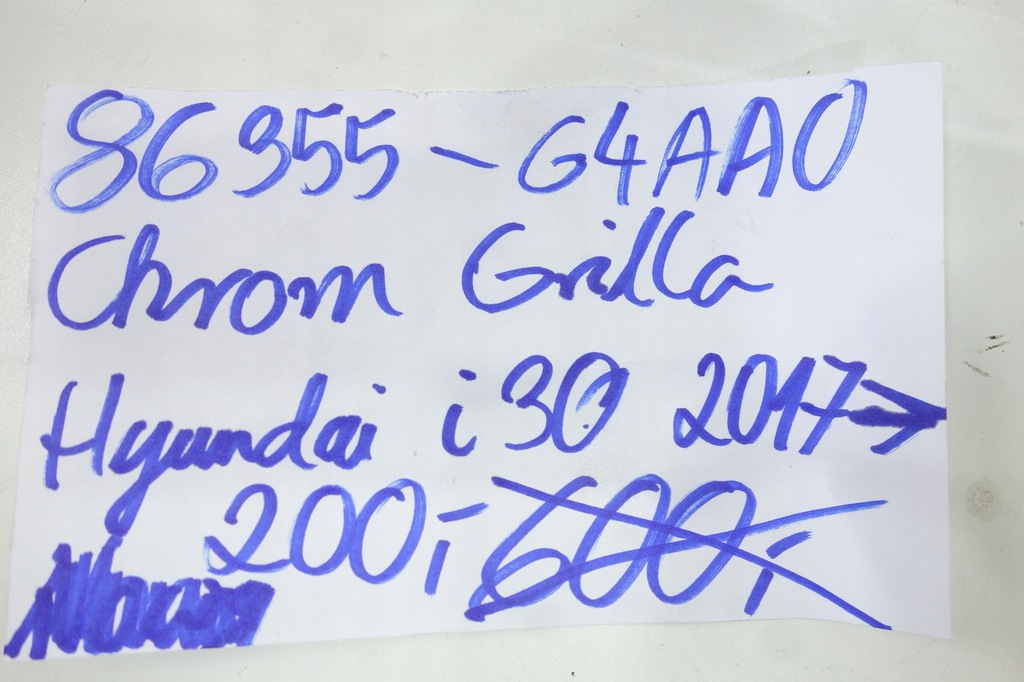 86355-G4AA0
Chrom Grilla
Hyundai i30 2017→
200,- 600,-